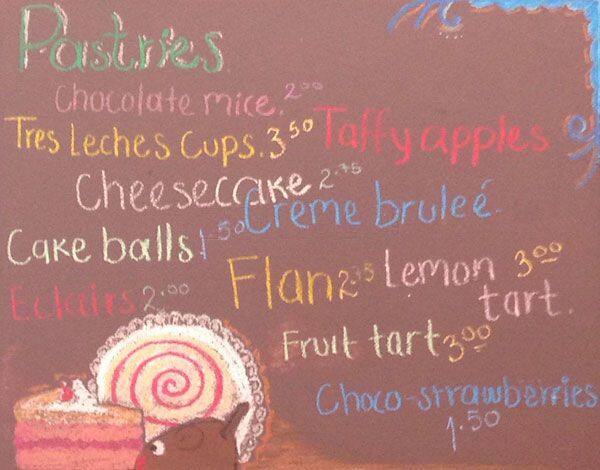 Pastries
Chocolate mice. 2.00
Tres Leches Cups. 3.50
Taffy apples
Cheesecake 2.75
Crème bruleé
Cake balls 1.50
Flan 2.75
Lemon tart. 3.00
Eclairs 2.00
Fruit tart 3.00
Choco-strawberries
1.50